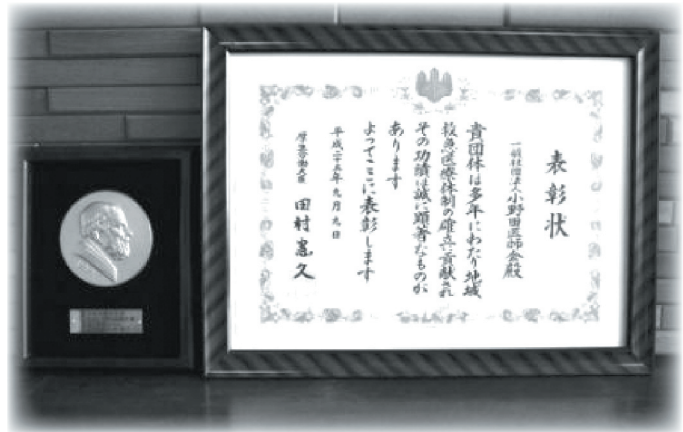 表彰状
一般社団法人小野田医師会殿
貴団体は多年にわたり地域
救急医療体制の確立に貢献され
その功績は誠に顕著なものが
あります
よってここに表彰します
平成二十五年九月九日
厚生労働大臣 田村憲久